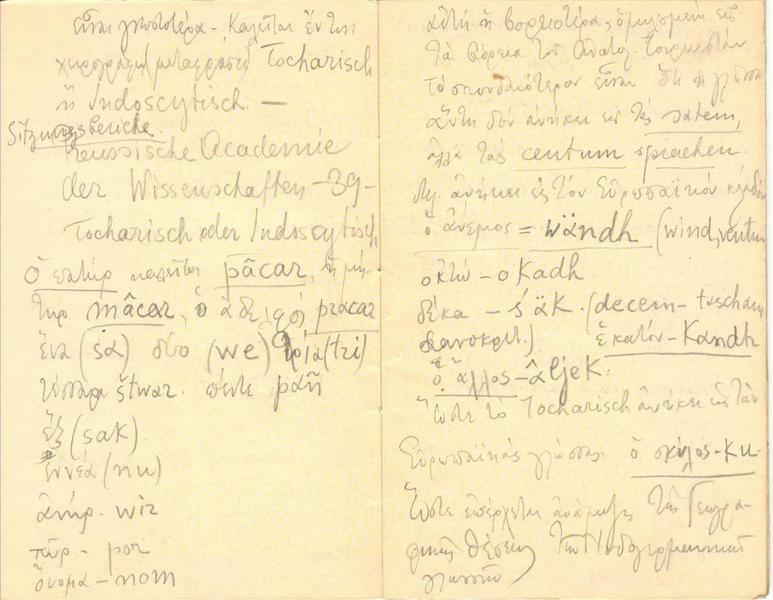 εἶναι γνωστοτέρα - Καλεῖται ἐν τῇ
χειρογράφῳ μεταφράσει Tocharisch
ἢ Indoscytisch. —
Sitzungsberichte
Preussische Academie
der Wissenschaften - 39 -
Tocharisch oder Indoscytisch
Ὁ πατήρ καλεῖται pâcar, ἡ μή-
τηρ mâcar, ὁ ἀδελφός pracar
ἕνα (sa) δύο (we) τρία (tri)
τέσσαρα štwar. πέντε pañ
ἕξ (sak)
ἐννέα (nu)
ἀνήρ - wir
πῦρ - por
ὄνομα - nom
αὐτὴ ἡ βορειοτέρα, ὁμιλουμένη εἰς
τὰ βόρεια τοῦ Ἀνατολ. Τουρκεστάν.
Τὸ σπουδαιότερον εἶναι ὅτι ἡ γλῶσσα
αὕτη δὲν ἀνήκει εἰς τὰς satem,
ἀλλὰ τὰς centum sprachen.
ἀνήκει εἰς τὸν Εὐρωπαϊκὸν κλάδον
ὁ ἄνεμος = wändh (wind, ventum
ὀκτώ - okadh
δέκα - śäk. (decem -
σανσκριτ.) ἑκατόν - Kandh
ὁ ἄλλος - âljek.
Ὥστε τὸ Tocharisch ἀνήκει εἰς τὰς
Εὐρωπαϊκὰς γλώσσας. ὁ σκύλος - Ku.
Ὥστε ἐπέρχεται ἀνάμιξις τῆς Γεωγρα-
φικῆς θέσεως τῶν Ἰνδογερμανικῶν
γλωσσῶν